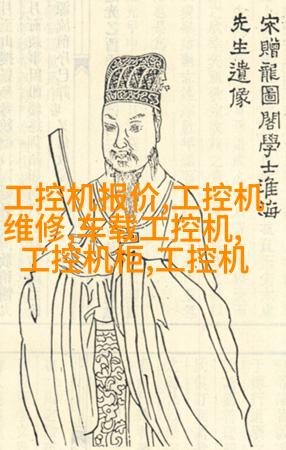 宋贈龍圖閣學士淮海
先生遺像
工控机报价,工控机
维修,车载工控机,
工控机柜,工控机